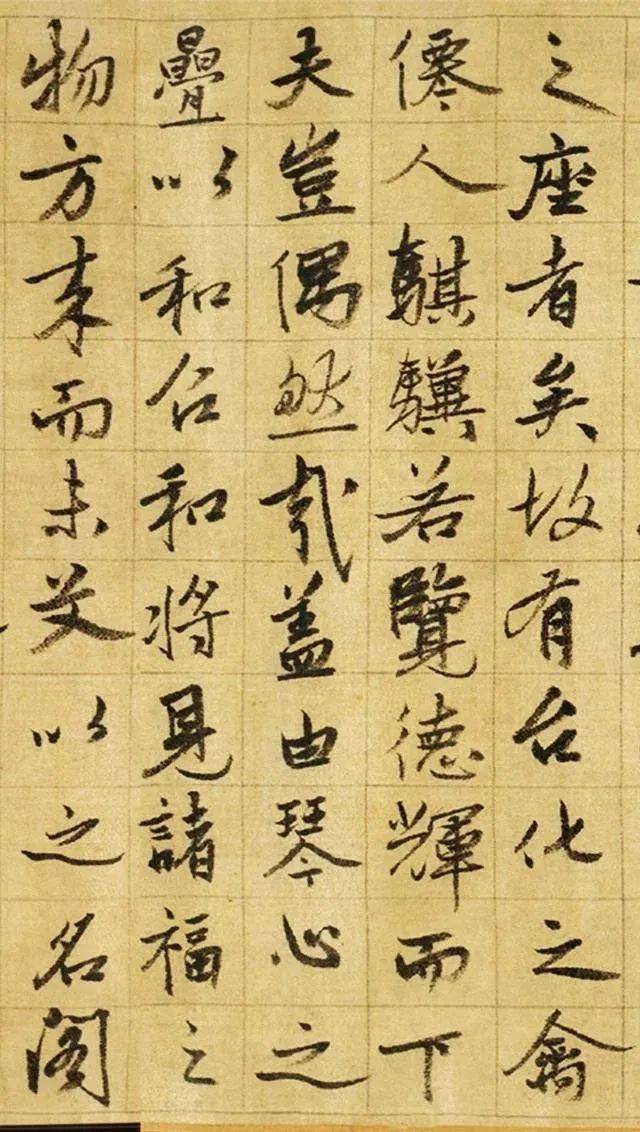 之座者矣故有台化之禽
僊人騏驥若覽德輝而下
夫豈偶然哉蓋由琴心之
疊以和召和将見諸福之
物方来而未艾以之名閣